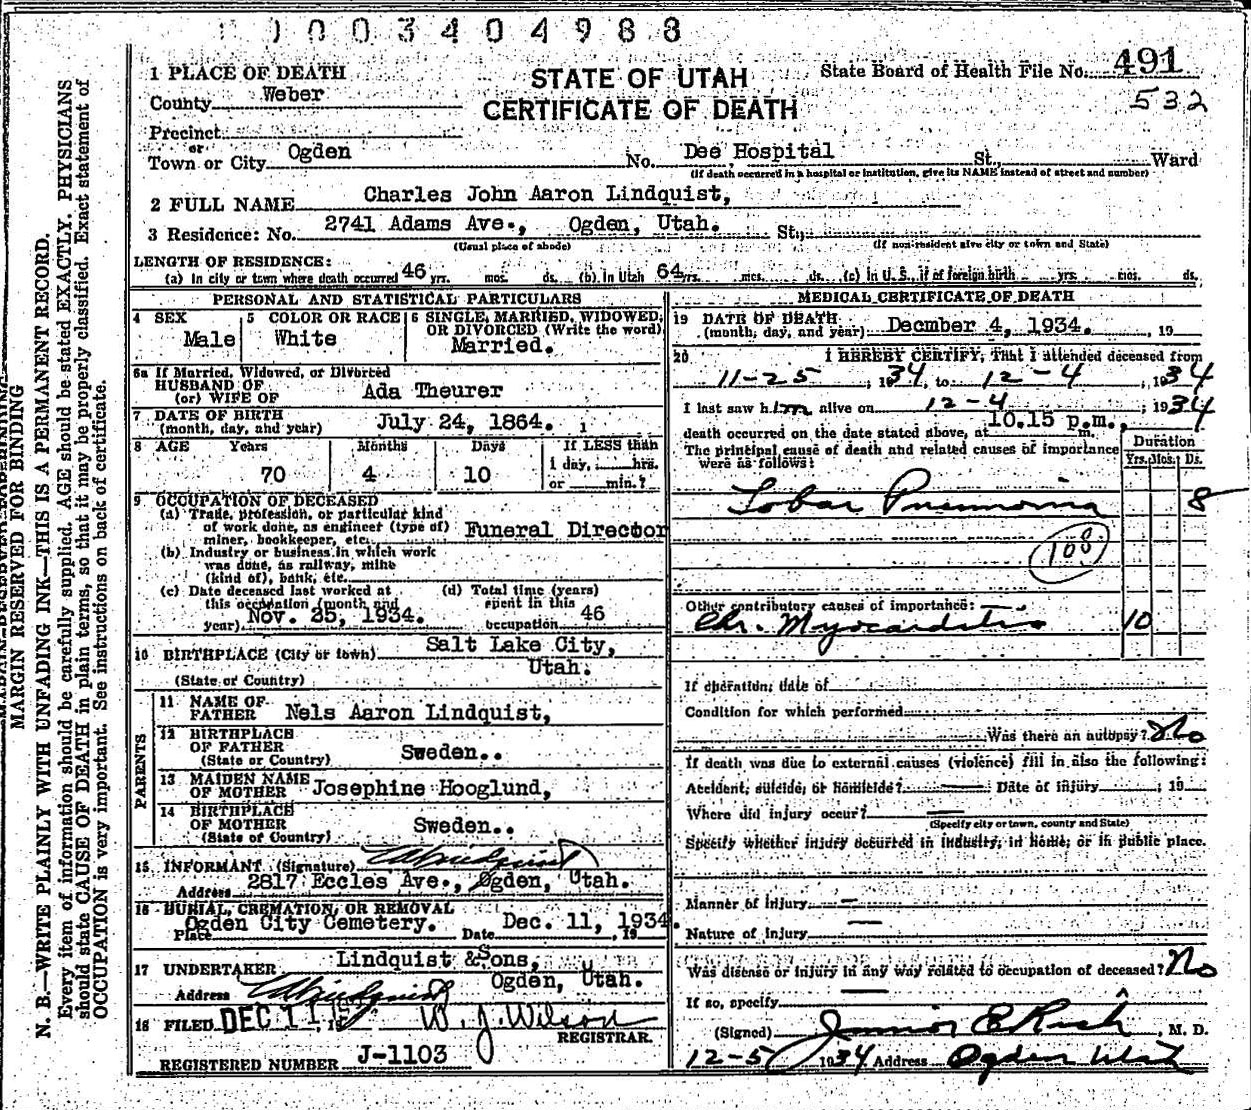 1003404988
1 PLACE OF DEATH
STATE OF UTAH
CERTIFICATE OF DEATH
State Board of Health File No. 491
532
County Weber
Precinct
or
Town or City Ogden No. Dee Hospital St., Ward
(If death occurred in a hospital or institution, give its NAME instead of street and number)
2 FULL NAME Charles John Aaron Lindquist,
3 Residence: No. 2741 Adams Ave., Ogden, Utah. St.,
(Usual place of abode) (If non-resident give city or town and State)
LENGTH OF RESIDENCE:
(a) In city or town where death occurred 46 yrs. mos. ds. (b) In Utah 64 yrs. mos. ds. (c) In U. S., if of foreign birth yrs. mos. ds.
PERSONAL AND STATISTICAL PARTICULARS
4 SEX Male
5 COLOR OR RACE White
6 SINGLE, MARRIED, WIDOWED, OR DIVORCED (Write the word) Married.
6a If Married, Widowed, or Divorced
HUSBAND OF
(or) WIFE OF Ada Theurer
7 DATE OF BIRTH
(month, day, and year) July 24, 1864.
8 AGE Years Months Days If LESS than
70 4 10 1 day, hrs.
or min.?
9 OCCUPATION OF DECEASED
(a) Trade, profession, or particular kind
of work done, as engineer (type of)
miner, bookkeeper, etc. Funeral Director
(b) Industry or business in which work
was done, as railway, mine
(kind of), bank, etc.
(c) Date deceased last worked at
this occupation (month and
year) Nov. 25, 1934.
(d) Total time (years)
spent in this
occupation 46
10 BIRTHPLACE (City or town) Salt Lake City,
Utah.
(State or Country)
PARENTS
11 NAME OF
FATHER Nels Aaron Lindquist,
12 BIRTHPLACE
OF FATHER Sweden..
(State or Country)
13 MAIDEN NAME
OF MOTHER Josephine Hooglund,
14 BIRTHPLACE
OF MOTHER Sweden..
(State or Country)
15 INFORMANT (Signature)
Address 2817 Eccles Ave., Ogden, Utah.
16 BURIAL, CREMATION, OR REMOVAL
Place Ogden City Cemetery. Date Dec. 11, 1934. 19
17 UNDERTAKER Lindquist & Sons,
Address Ogden, Utah.
18 FILED DEC 11, 19 W. J. Wilson
REGISTRAR.
REGISTERED NUMBER J-1103
MEDICAL CERTIFICATE OF DEATH
19 DATE OF DEATH
(month, day, and year) Decmber 4, 1934. , 19
20 I HEREBY CERTIFY, That I attended deceased from
11-25, 1934, to 12-4, 1934
I last saw him alive on 12-4, 1934
death occurred on the date stated above, at 10.15 p.m., m.
The principal cause of death and related causes of importance
were as follows:
Duration
Yrs. Mos. Ds.
Lobar Pneumonia 8
108
Other contributory causes of importance:
Chr. Myocarditis 10
If operation, date of
Condition for which performed
Was there an autopsy? No
If death was due to external causes (violence) fill in also the following:
Accident, suicide, or homicide? — Date of injury , 19
Where did injury occur? —
(Specify city or town, county and State)
Specify whether injury occurred in industry, in home, or in public place.
Manner of injury —
Nature of injury —
Was disease or injury in any way related to occupation of deceased? No
If so, specify —
(Signed) Junior E Rich , M. D.
12-5 1934 Address Ogden Utah
MARGIN RESERVED FOR BINDING
N. B.—WRITE PLAINLY WITH UNFADING INK—THIS IS A PERMANENT RECORD.
Every item of information should be carefully supplied. AGE should be stated EXACTLY. PHYSICIANS
should state CAUSE OF DEATH in plain terms, so that it may be properly classified. Exact statement of
OCCUPATION is very important. See instructions on back of certificate.